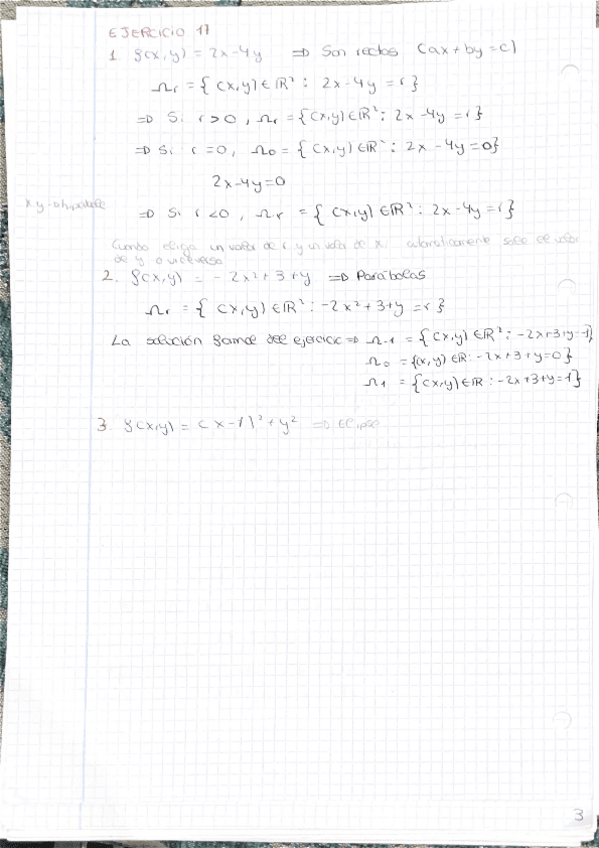 EJERCICIO 11
1. f(x,y) = 2x-4y ⇒ Son rectas (ax + by = c)
Ωr = { (x,y) ∈ ℝ² : 2x - 4y = r }
⇒ Si r > 0, Ωr = { (x,y) ∈ ℝ² : 2x - 4y = r }
⇒ Si r = 0, Ω0 = { (x,y) ∈ ℝ² : 2x - 4y = 0 }
2x - 4y = 0
xy →
⇒ Si r < 0, Ωr = { (x,y) ∈ ℝ² : 2x - 4y = r }
Cuando elige un valor de r y un valor de x, sale el valor
de y o viceversa
2. f(x,y) = -2x² + 3 + y ⇒ Parábolas
Ωr = { (x,y) ∈ ℝ² : -2x² + 3 + y = r }
La solución formal del ejercicio ⇒ Ω-1 = { (x,y) ∈ ℝ² : -2x+3+y=-1 }
Ω0 = { (x,y) ∈ ℝ : -2x+3+y=0 }
Ω1 = { (x,y) ∈ ℝ : -2x+3+y=1 }
3. f(x,y) = (x-1)² + y² ⇒ Elipse
3